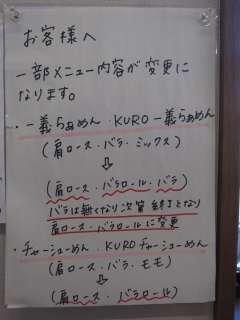 お客様へ
一部メニュー内容が変更に
なります。
・一義らぁめん・KURO一義らぁめん
(肩ロース・バラ・ミックス)
⇩
(肩ロース・バラロール・バラ)
バラは無くなり次第終了となり
肩ロース・バラロールに変更
・チャーシューめん・KUROチャーシューめん
(肩ロース・バラ・モモ)
⇩
(肩ロース・バラロール)